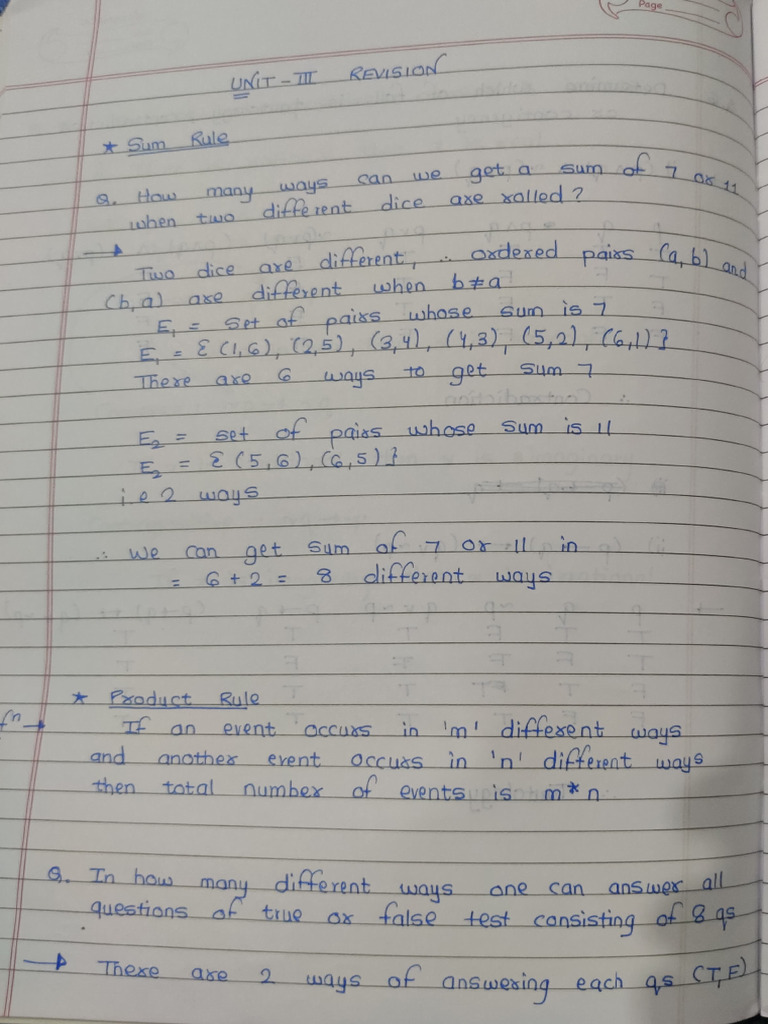 Page
UNIT - III REVISION
* Sum Rule
Q. How many ways can we get a sum of 7 or 11
when two different dice are rolled?
→ Two dice are different, ∴ ordered pairs (a,b) and
(b,a) are different when b≠a
E₁ = set of pairs whose sum is 7
E₁ = {(1,6), (2,5), (3,4), (4,3), (5,2), (6,1)}
There are 6 ways to get sum 7
E₂ = set of pairs whose sum is 11
E₂ = {(5,6), (6,5)}
i.e 2 ways
∴ We can get sum of 7 or 11 in
= 6 + 2 = 8 different ways
* Product Rule
fⁿ → If an event occurs in 'm' different ways
and another event occurs in 'n' different ways
then total number of events is m*n
Q. In how many different ways one can answer all
questions of true or false test consisting of 8 qs
→ There are 2 ways of answering each qs (T,F)